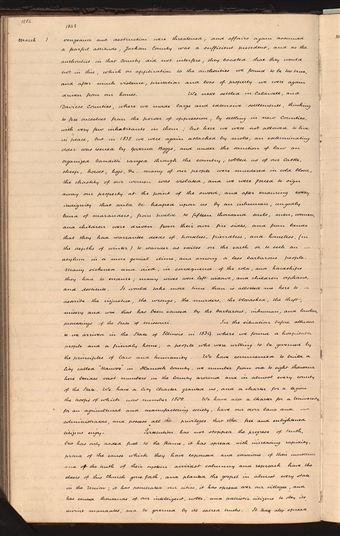 1842
1842
March 1
vengeance and destruction were threatened, and affairs again assumed
a fearful attitude, Jackson County was a sufficient precedent, and as the
authorities in that county did not interfere, they boasted that they would
not in this, which on application to the authorities we found to be too true,
and after much violence, privation and loss of property we were again
driven from our homes. We next settled in Caldwell, and
Daviess Counties, where we made large and extensive settlements, thinking
to free ourselves from the power of oppression, by settling in new Counties,
with very few inhabitants in them; but here we were not allowed to live
in peace, but in 1838 we were again attacked by mobs, an exterminating
order was issued by Governor Boggs, and under the sanction of law an
organized banditti ranged through the country, robbed us of our Cattle,
sheep, horses, hogs, &c. many of our people were murdered in cold blood,
the chastity of our women was violated, and we were forced to sign
away our property at the point of the sword, and after enduring every
indignity that could be heaped upon us by an inhuman, ungodly
band of marauders, from twelve to fifteen thousand souls, men, women,
and children were driven from their own fire sides, and from lands
that they had warrantee deeds of houseless, friendless, and homeless, (in
the depths of winter,) to wander as exiles on the earth or to seek an
asylum in a more genial clime, and among a less barbarous people.
Many sickened and died, in consequence of the cold, and hardships
they had to endure; many wives were left widows, and children orphans,
and destitute. It would take more time than is allotted me here to
describe the injustice, the wrongs, the murders, the bloodshed, the theft,
misery and woe that has been caused by the barbarous, inhuman, and lawless
proceedings of the State of Missouri. In the situation before alluded
to we arrived in the State of Illinois in 1839, where we found a hospitable
people and a friendly home; a people who were willing to be governed by
the principles of law and humanity. We have commenced to build a
City called "Nauvoo" in Hancock County, we number from six to eight thousand
here besides vast numbers in the County around and in almost every county
of the State. We have a City Charter granted us and a charter for a legion
the troops of which now number 1500. We have also a charter for a University
for an agricultural and manufacturing society, have our own laws and
administrators, and possess all the privileges that other free and enlightened
citizens enjoy. Persecution has not stopped the progress of truth,
but has only added fuel to the flame, it has spread with increasing rapidity,
proud of the cause which they have espoused and conscious of their innocence
and of the truth of their system amidst calumny and reproach have the
elders of this Church gone forth, and planted the gospel in almost every state
in the Union; it has penetrated our cities, it has spread over our villages, and
has caused thousands of our intelligent, noble, and patriotic citizens to obey its
divine mandates, and be governed by its sacred truths. It has also spread